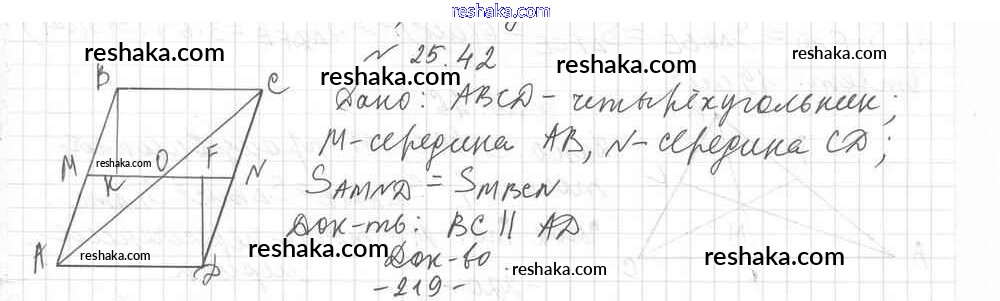 reshaka.com
№ 25.42
reshaka.com
reshaka.com
reshaka.com
Дано: ABCD - четырёхугольник;
M-середина AB, N-середина CD;
S_AMND = S_MBCN
Док-ть: BC || AD
Док-во
-219-
B
C
M
K
O
F
N
A
D
reshaka.com
reshaka.com
reshaka.com
reshaka.com
reshaka.com
reshaka.com